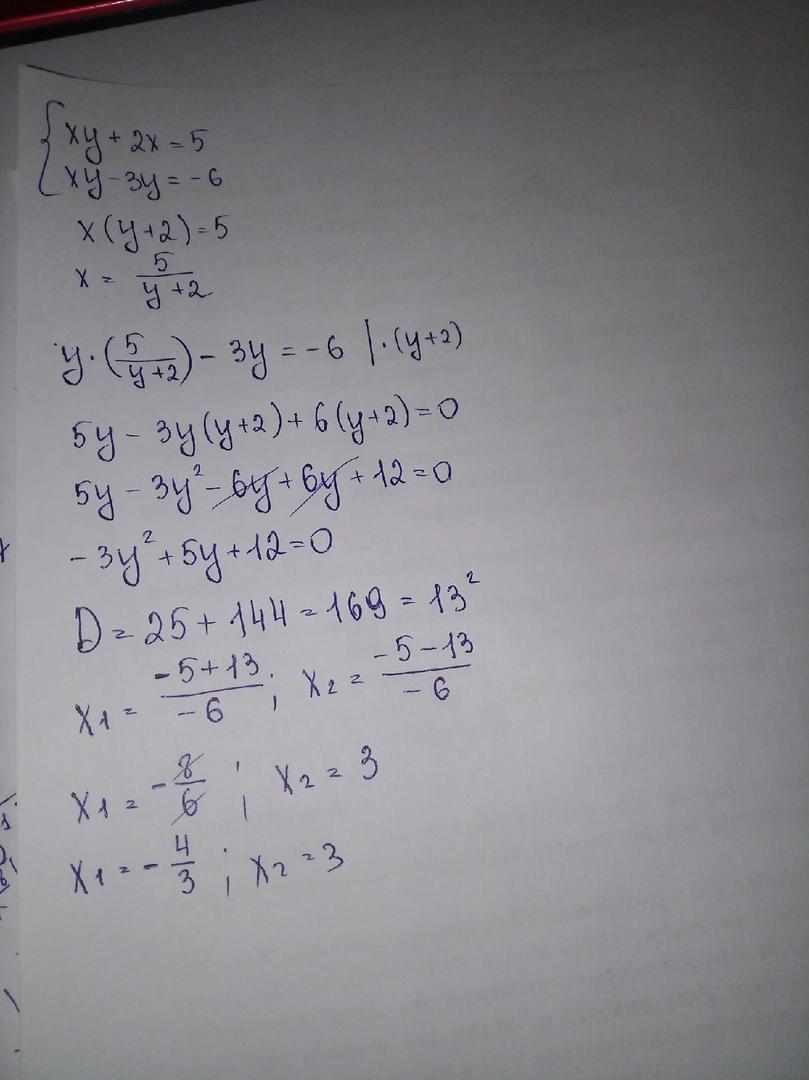 {xy + 2x = 5
xy - 3y = -6
x(y+2) = 5
x = 5/(y+2)
y·(5/(y+2)) - 3y = -6 |·(y+2)
5y - 3y(y+2) + 6(y+2) = 0
5y - 3y² - 6y + 6y + 12 = 0
-3y² + 5y + 12 = 0
D = 25 + 144 = 169 = 13²
x₁ = (-5+13)/(-6) ; x₂ = (-5-13)/(-6)
x₁ = -8/6 ; x₂ = 3
x₁ = -4/3 ; x₂ = 3